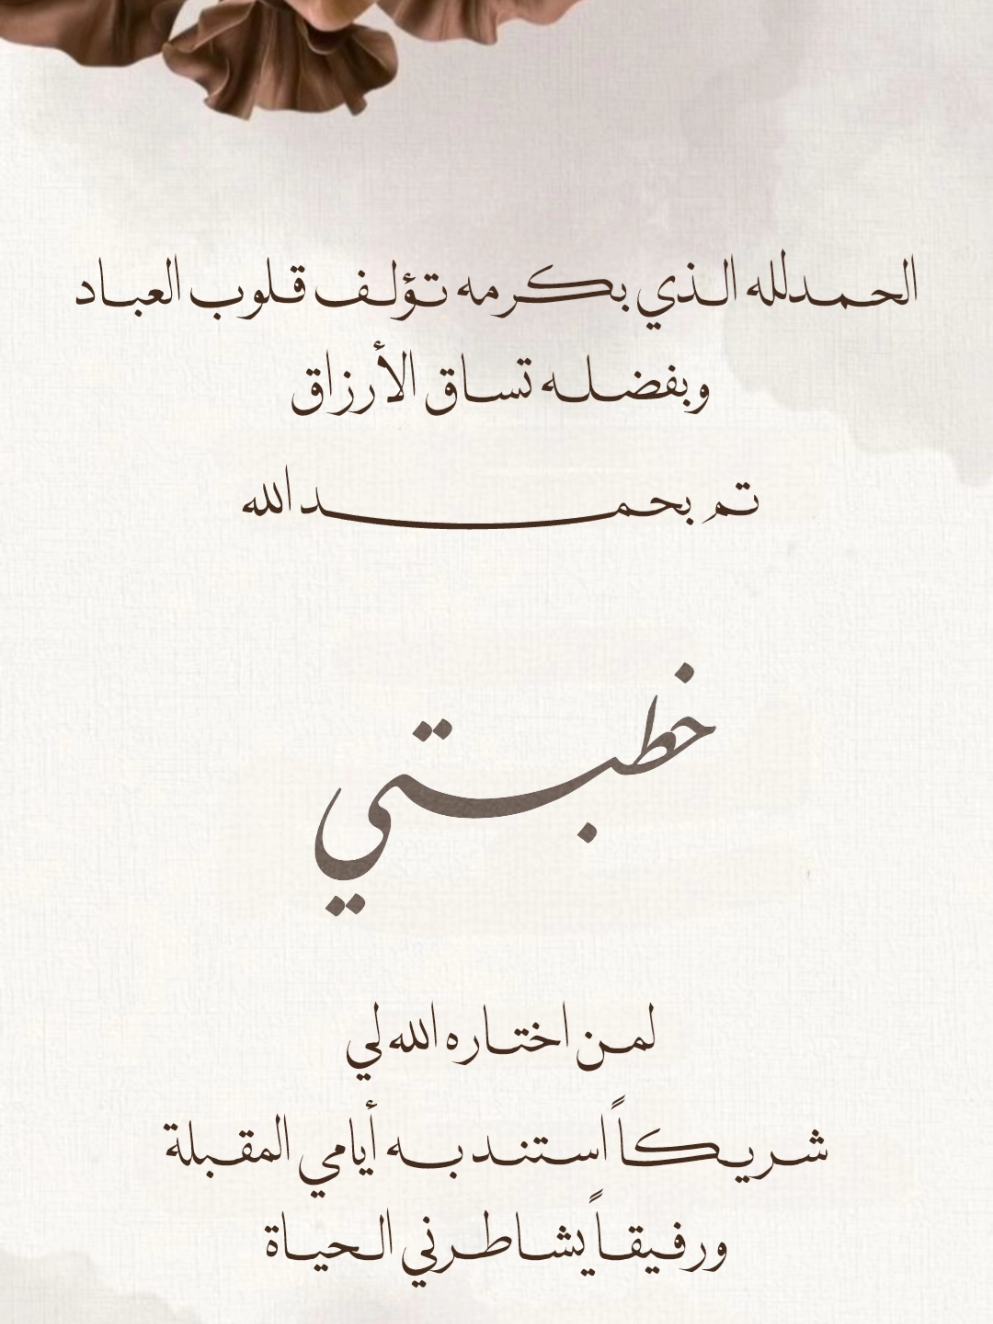 الحمدلله الذي بكرمه تؤلف قلوب العباد
وبفضله تساق الأرزاق
تم بحمد الله
خطبتي
لمن اختاره الله لي
شريكاً استند به أيامي المقبلة
ورفيقاً يشاطرني الحياة